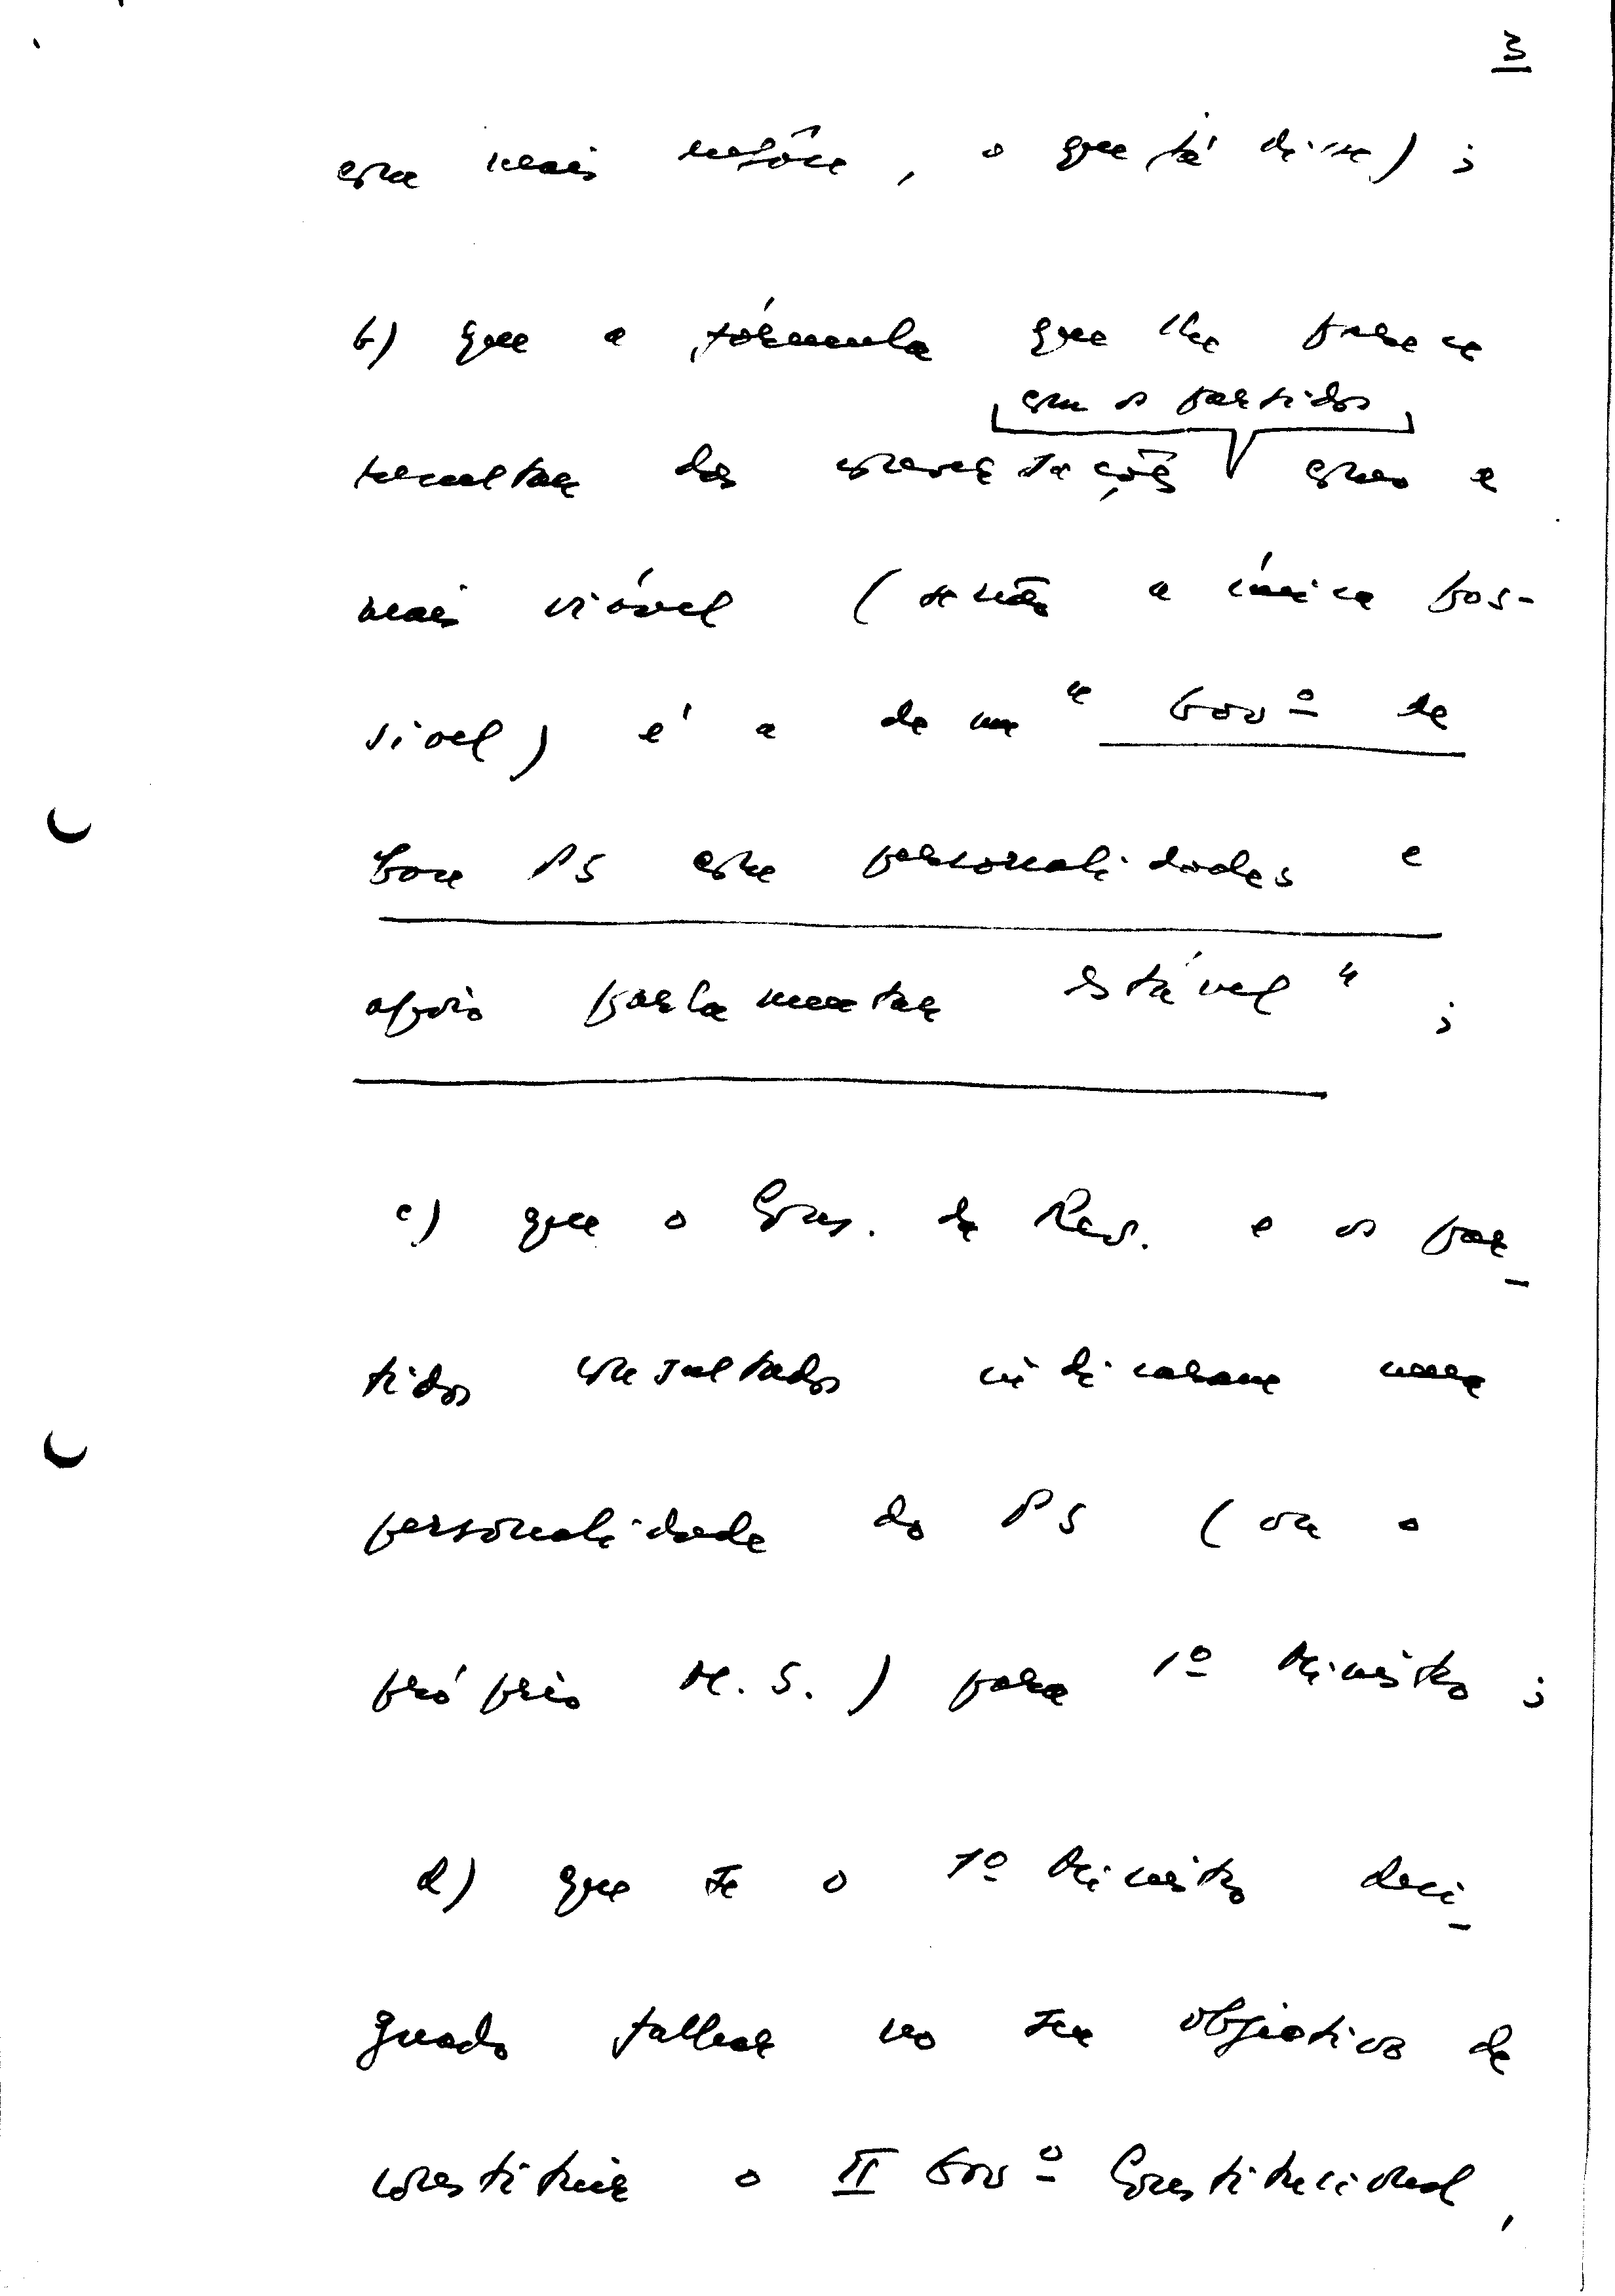 3
com mais ênfase, o que já disse);
b) que a fórmula que lhe parece
com os partidos
resultar das conversações como a
mais viável (senão a única pos-
sível) é a de um "Govº de
base PS com personalidades e
apoio parlamentar estável";
c) que o Cons. da Rev. e os par-
tidos consultados indicaram uma
personalidade do PS (ou o
próprio M. S.) para 1º Ministro;
d) que se o 1º Ministro desi-
gnado falhar no seu objectivo de
constituir o II Govº Constitucional,